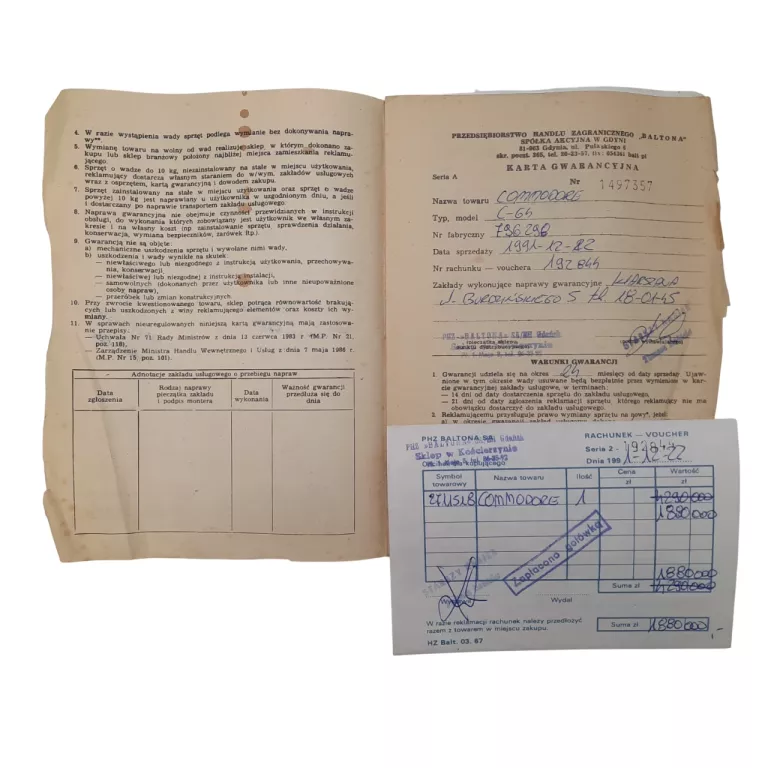 4. W razie wystąpienia wady sprzęt podlega wymianie bez dokonywania napra-
wy**
5. Wymianę towaru na wolny od wad realizuje sklep, w którym dokonano za-
kupu lub sklep branżowy położony najbliżej miejsca zamieszkania reklamu-
jącego.
6. Sprzęt o wadze do 10 kg, niezainstalowany na stałe w miejscu użytkowania,
reklamujący dostarcza własnym staraniem do w/wym. zakładów usługowych
wraz z osprzętem, kartą gwarancyjną i dowodem zakupu.
7. Sprzęt zainstalowany na stałe w miejscu użytkowania oraz sprzęt o wadze
powyżej 10 kg jest naprawiany u użytkownika w uzgodnionym dniu, a jeśli
i dostarczany po naprawie transportem zakładu usługowego.
8. Naprawa gwarancyjna nie obejmuje czynności przewidzianych w instrukcji
obsługi, do wykonania których zobowiązany jest użytkownik we własnym za-
kresie i na własny koszt (np zainstalowanie sprzętu, sprawdzenia działania,
konserwacja, wymiana bezpieczników, żarówek itp.).
9. Gwarancją nie są objęte:
a) mechaniczne uszkodzenia sprzętu i wywołane nimi wady,
b) uszkodzenia i wady wynikłe na skutek:
— niewłaściwego lub niezgodnego z instrukcją użytkowania, przechowywa-
nia, konserwacji,
— niewłaściwej lub niezgodnej z instrukcją instalacji,
— samowolnych (dokonanych przez użytkownika lub inne nieupoważnione
osoby napraw),
— przeróbek lub zmian konstrukcyjnych.
10. Przy zwrocie kwestionowanego towaru, sklep potrąca równowartość brakują-
cych lub uszkodzonych z winy reklamującego elementów oraz koszty ich wy-
miany.
11. W sprawach nieuregulowanych niniejszą kartą gwarancyjną mają zastosowa-
nie przepisy:
— Uchwała Nr 71 Rady Ministrów z dnia 13 czerwca 1983 r (M.P. Nr 21,
poz. 118),
— Zarządzenie Ministra Handlu Wewnętrznego i Usług z dnia 7 maja 1986 r.
(M.P. Nr 15, poz. 101).
Adnotacje zakładu usługowego o przebiegu napraw
Data zgłoszenia
Rodzaj naprawy pieczątka zakładu i podpis montera
Data wykonania
Ważność gwarancji przedłuża się do dnia
PRZEDSIĘBIORSTWO HANDLU ZAGRANICZNEGO „BALTONA"
SPÓŁKA AKCYJNA W GDYNI
81-963 Gdynia, ul. Pułaskiego 6
KARTA GWARANCYJNA
Seria A
Nr 1497357
Nazwa towaru COMMODORE
Typ, model C-64
Nr fabryczny 796296
Data sprzedaży 1991-12-22
Nr rachunku — vouchera 192844
Zakłady wykonujące naprawy gwarancyjne WARSZAWA
WARUNKI GWARANCJI
1. Gwarancji udziela się na okres 24 miesięcy od daty sprzedaży. Ujaw-
nione w tym okresie wady usuwane będą bezpłatnie przez wymienione w kar-
cie gwarancyjnej zakłady usługowe, w terminach:
— 14 dni od daty dostarczenia sprzętu do zakładu usługowego,
— 21 dni od daty zgłoszenia reklamacji sprzętu, którego reklamujący nie ma
obowiązku dostarczyć do zakładu usługowego.
2. Reklamującemu przysługuje prawo wymiany sprzętu na nowy*, jeżeli
PHZ BALTONA SA
Sklep w Kościerzynie
RACHUNEK — VOUCHER
Seria 2 - 192844
Dnia 1991-12-22
Symbol towarowy
Nazwa towaru
Ilość
Cena zł
Wartość zł
COMMODORE 1 4290000
1880000
Zapłacono gotówką
1880000
Suma zł 4290000
Wydał
W razie reklamacji rachunek należy przedłożyć
razem z towarem w miejscu zakupu.
Suma zł 1880000
HZ Balt. 03. 67